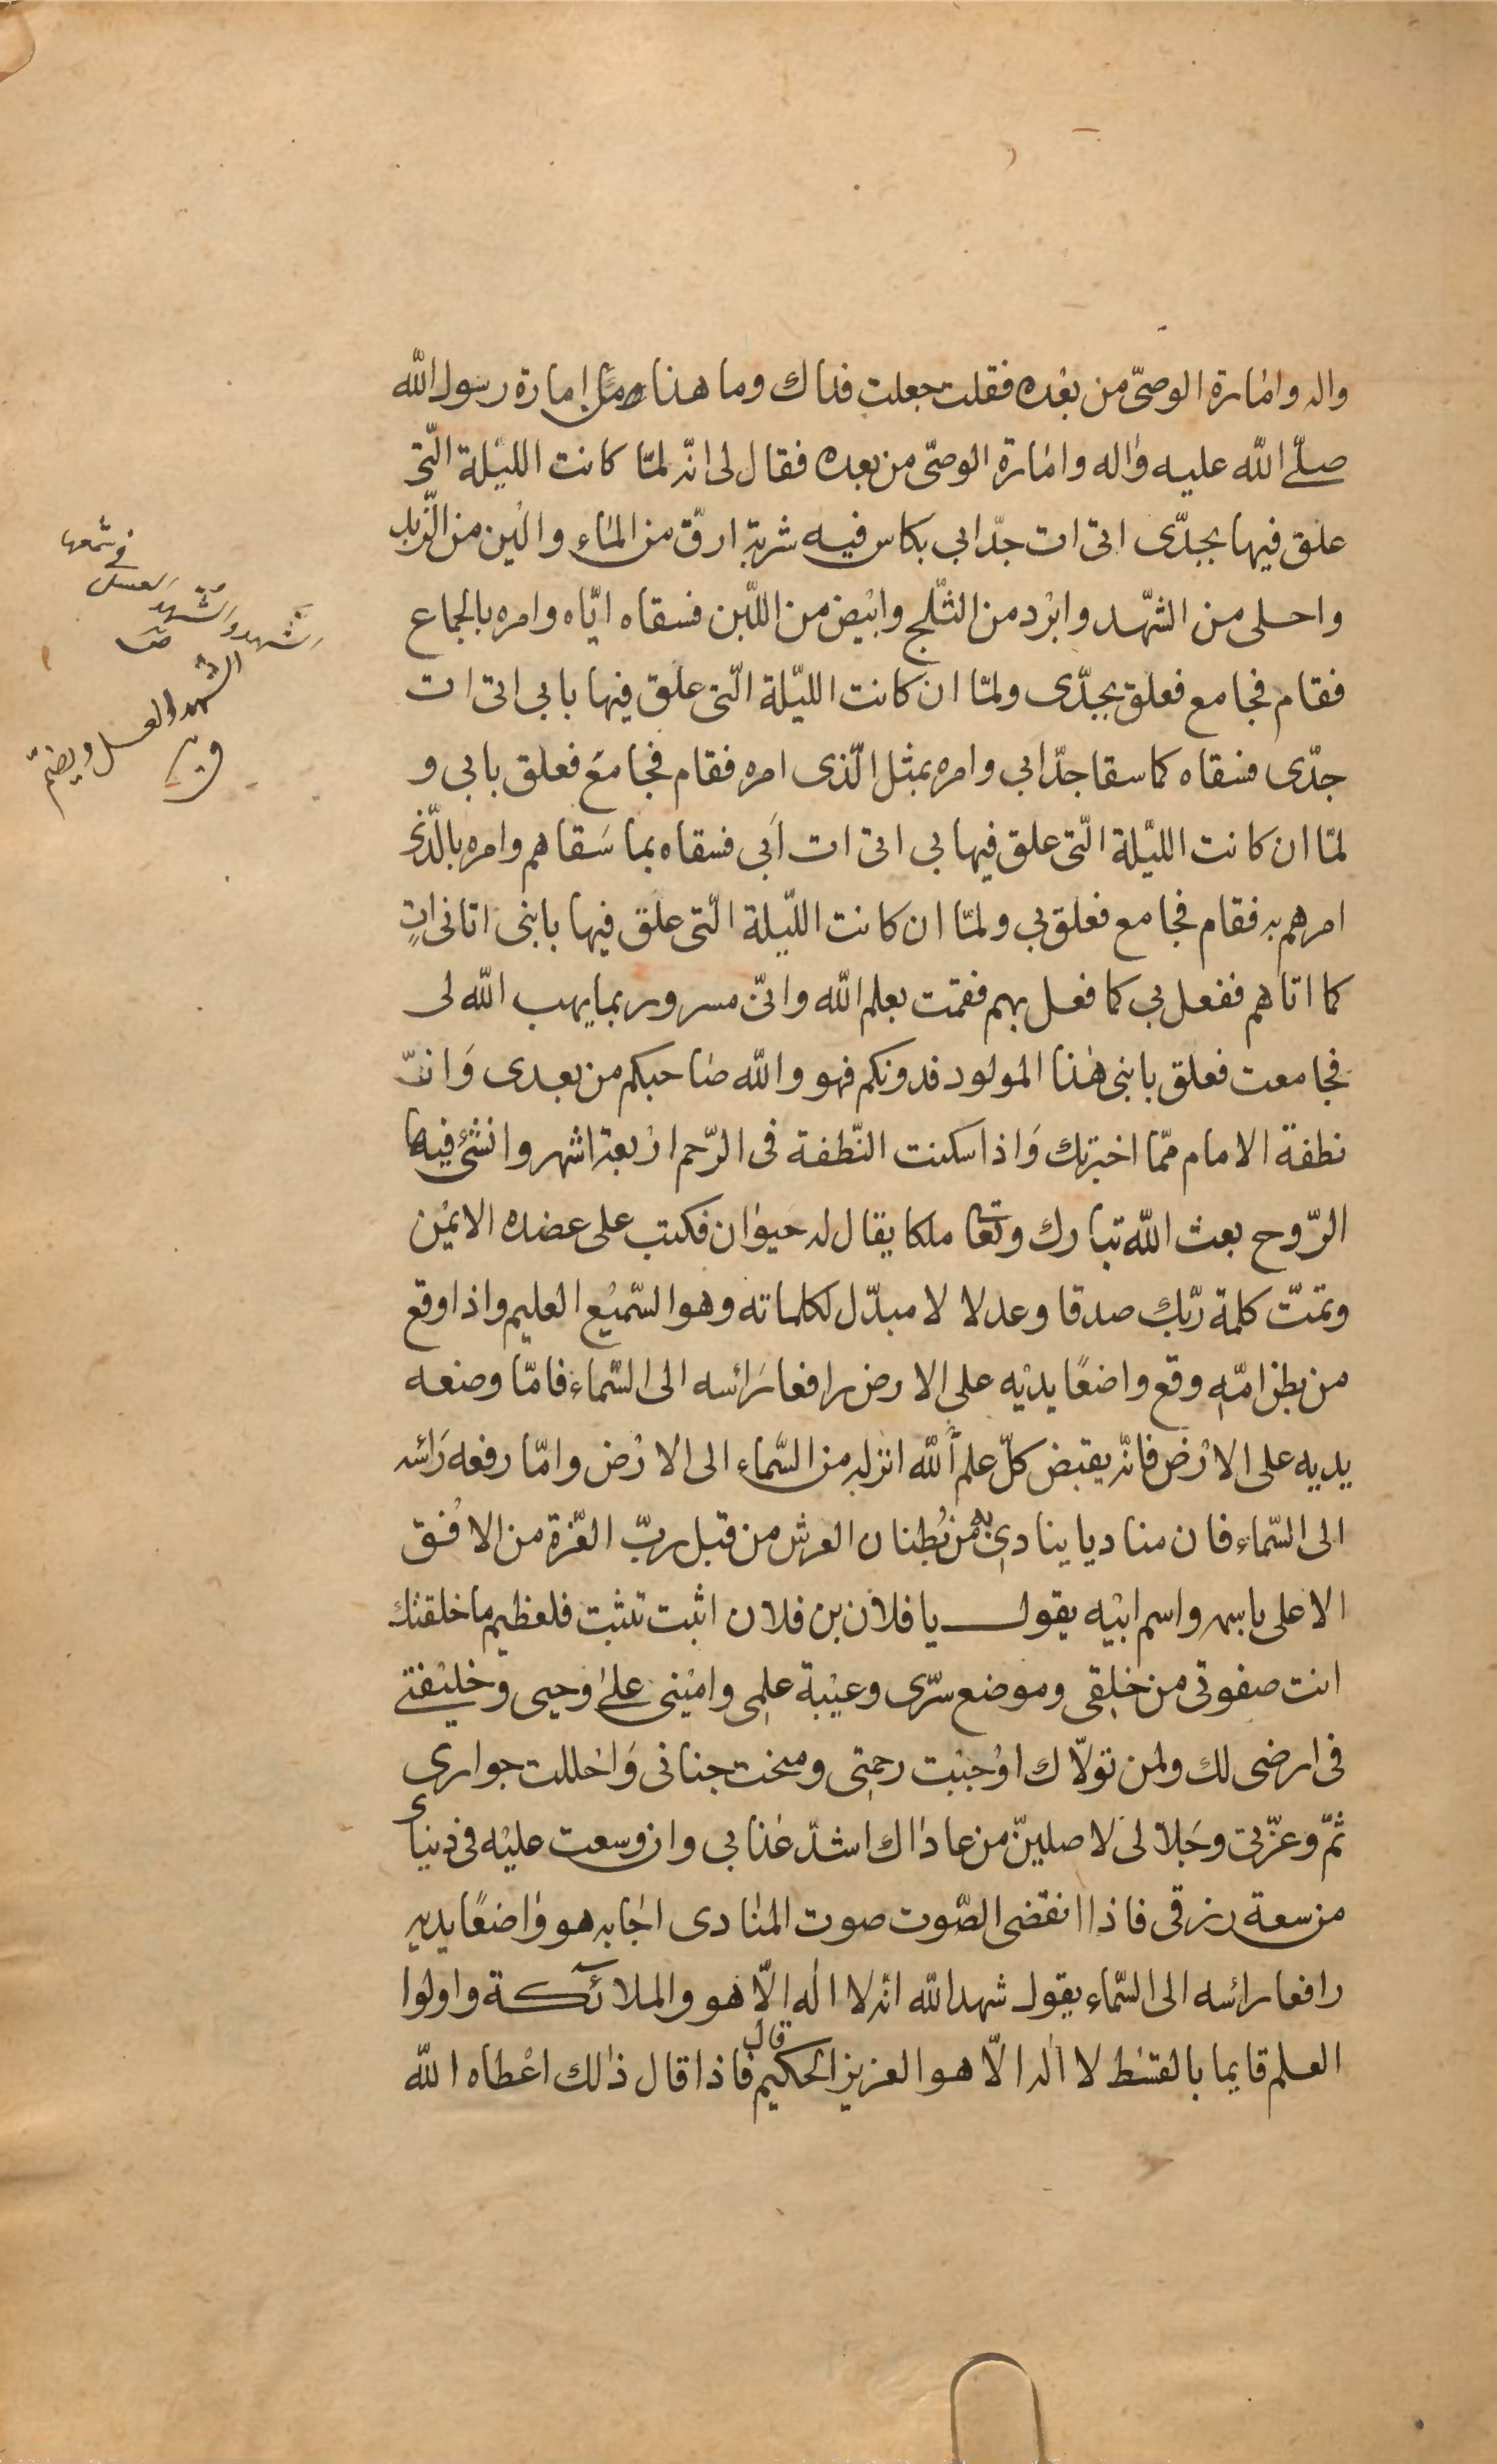 واله وامارة الوصىّ من بعده فقلت جعلت فداك وما هذا من امارة رسول الله
صلّى الله عليه واله وامارة الوصىّ من بعده فقال لى انّه لمّا كانت الليلة الّتى
علق فيها بجدّى اتى ات جدّ ابي بكاس فيه شربة ارقّ من الماء والين من الزّبد
واحلى من الشّهد وابرد من الثّلج وابيض من اللّبن فسقاه ايّاه وامره بالجماع
فقام فجامع فعلق بجدّى ولمّا ان كانت الليّلة الّتى علق فيها بابي اتى ات
جدّى فسقاه كما سقا جدّ ابي وامره بمثل الّذى امره فقام فجامع فعلق بابي و
لمّا ان كانت الليّلة الّتى علق فيها بي اتى ات اَبي فسقاه بما سَقاهم وامره بالّذى
امرهم به فقام فجامع فعلق بي ولمّا ان كانت الليّلة الّتى علق فيها بابنى اتانى اتٍ
كما اتاهم ففعل بي كما فعل بهم فقمت بعلم الله وانّى مسرور بما يهب الله لى
فجامعت فعلق بابنى هذا المولود فدونكم فهو والله صاحبكم من بعدى وَانّ
نطفة الامام ممّا اخبرتك وَاذا سكنت النّطفة فى الرّحم اربعة اشهر وانشئ فيها
الرّوح بعث الله تبارك وتعا ملكا يقال له حَيوان فكتب على عضده الايمن
وتمّت كلمة ربّك صدقا وعدلا لا مبدّل لكلماته وهو السّميع العليم واذا وقع
من بطن امّه وقع واضعًا يديه على الارض رافعا رَاسه الى السّماء فامّا وضعه
يديه على الارض فانّه يقبض كلّ علم لله انزله من السّماء الى الارض وامّا رفعه رَاسه
الى السّماء فان مناديا ينادى به من بُطنان العرش من قبل ربّ العّزة من الافُق
الاعلى باسمه واسم ابيه يقول يا فلان بن فلان اثبت تثبت فلعظيم ما خلقتك
انت صفوتى من خلقى وموضع سرّى وعيبة علمى وامينى على وحيى وخليفتى
فى ارضى لك ولمن تولّاك اوجبت رحمتى ومنحت جنانى وَاحللت جوارى
ثمّ وعزّتى وجَلالى لَاصلينّ من عاداك اشدّ عذابي وان وسعت عليه فى دنياى
من سعة رزقى فاذا انقضى الصّوت صوت المنادى اجابه هو واضعًا يديه
رافعا راسه الى السّماء يقول شهد الله انّه لا اله الّا هو والملائكة واولوا
العلم قايما بالقسط لا اله الّا هو العزيز الحكيم قال فاذا قال ذلك اعْطاه الله
فى شمعها
الشهد والشهد العسل
الشهد العسل ويضمّ